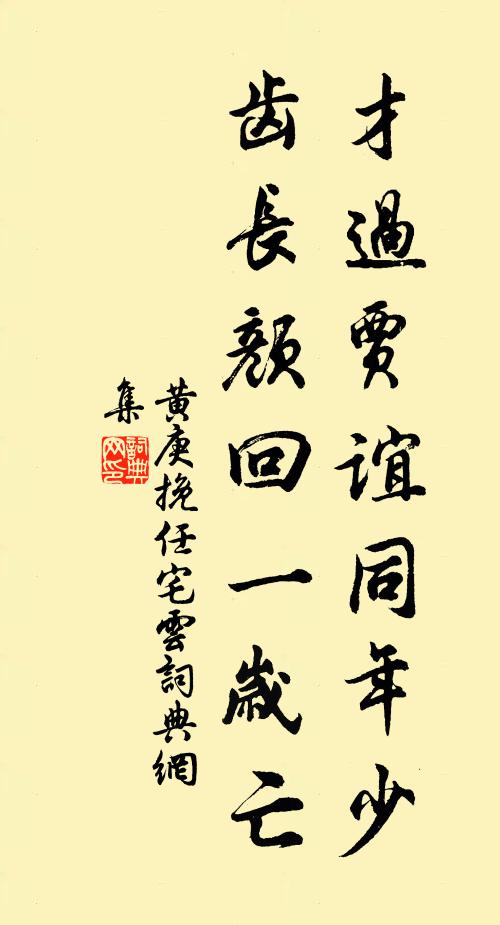 才過賈誼同年少
齿長顏回一歲亡
黄庚挽任宅雲詞典網
集
詞典网印